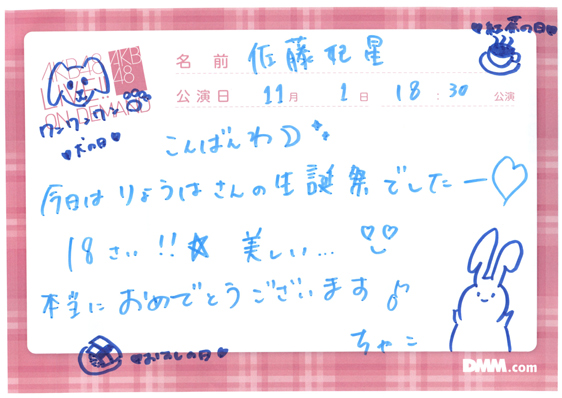 ♥紅茶の日♥
AKB48
LIVE!!
ON DEMAND
AKB
48
名前 佐藤妃星
公演日 11月 1日 18:30 公演
ワンワンワン
♥犬の日♥
こんばんわ☽
今日はりょうはさんの生誕祭でしたー♡
18さい!!☆ 美しい...
本当におめでとうございます♪
ちゃこ
♥おすしの日♥
DMM.com